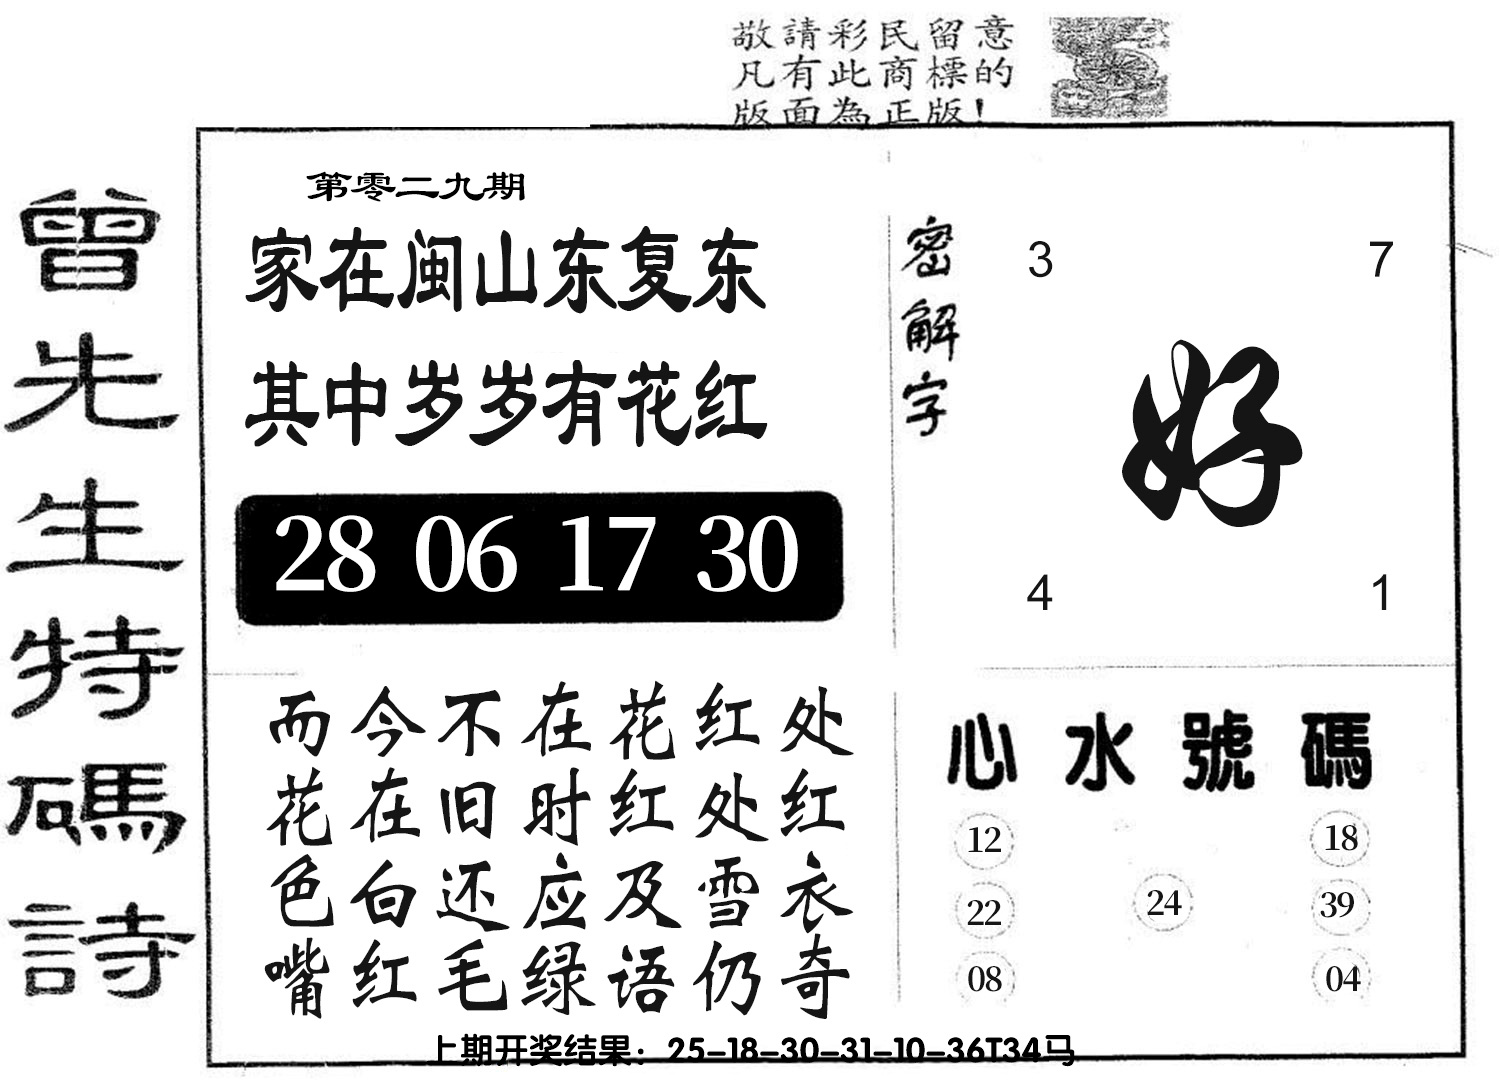 敬請彩民留意
凡有此商標的
版面為正版！
曾先生特碼詩
第零二九期
家在闽山东复东
其中岁岁有花红
28 06 17 30
密解字
3 7
好
4 1
而今不在花红处
花在旧时红处红
色白还应及雪衣
嘴红毛绿语仍奇
心水號碼
12 18
24
22 39
08 04
上期开奖结果：25-18-30-31-10-36T34马